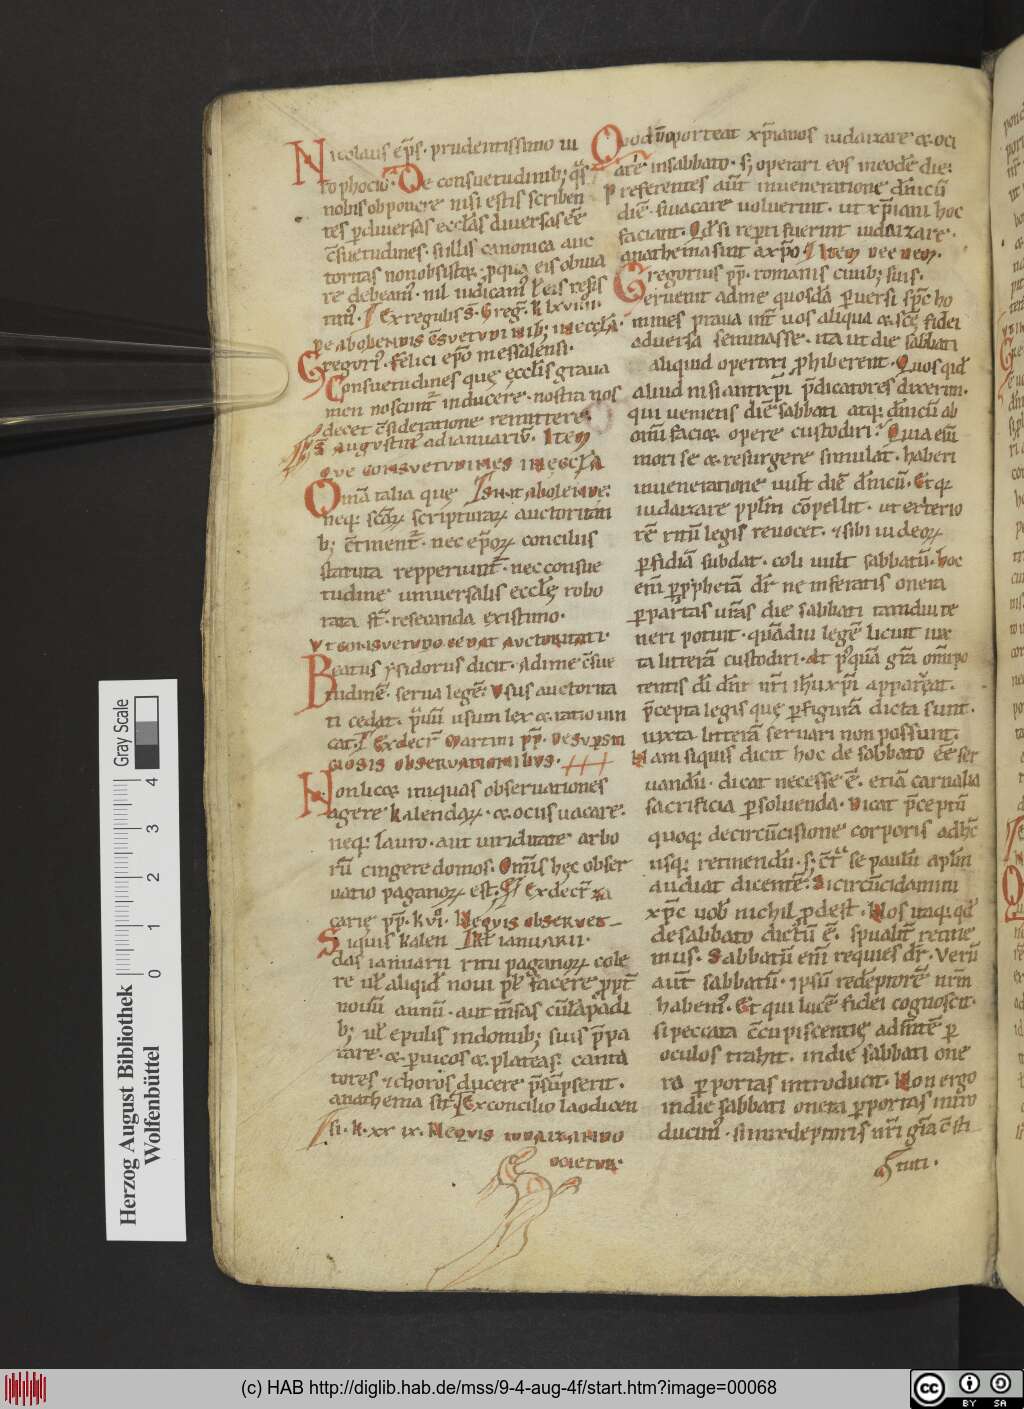 Nicolaus ep̄s· prudentissimo ui
ro phocio· De consuetudinib; q̄s
nobis obponere nisi estis scriben
tes p̄ diuersas ecclas diuersas ēē
c̄suetudines· si illis canonica auc
toritas non obsistat· p qua eis obuia
re debeam̄· nil iudicam̄ uel eis resis
tim̄· Ex regulis S· Greg· k lxviii·
De abolendis c̄suetudinib; in eccła·
Gregori· felici ep̄o messalensi·
Consuetudines que ecclis graua
men noscunt̄ inducere· nostra nos
decet c̄sideratione remittere·
S Augustin ad ianuariū· Item
que consuetudines in eccła
Omīa talia que sunt abolende·
neq; scāꝝ scripturaꝝ auctoritati
b; c̄tinent̄· nec ep̄oꝝ conciliis
statuta repperiunt̄· nec consue
tudine uniuersalis eccle robo
rata st̄· resecanda existimo·
Vt consuetudo cedat auctoritati·
Beatus ysidorus dicit· Ad ime c̄sue
tudinē· serua legē· Vsus auctorita
ti cedat· p̄uū usum lex et ratio uin
cat· Ex decr̄ Martini pp̄· De supersti
ciosis obseruationibus·
Non licet iniquas obseruationes
agere kalendaꝝ· et ociis uacare·
neq; lauro· aut uiriditate arbo
rū cingere domos· Om̄is hec obser
uatio paganoꝝ est· Ex decr̄ za
carie pp̄· k vi· Ne quis obseruet
Siquis kalen kl ianuarii·
das ianuarii ritu paganoꝝ cole
re ul̄ aliqid noui pl facere ppt̄
nouū annū· aut m̄sas cū lāpadi
b; ul̄ epulis in domib; suis p̄pa
rare· et p uicos et plateas; canta
tores & choros ducere p̄sūpserit·
anathema sit· Ex concilio laodicen
si· k· xxix· Ne quis iudaizando
ocietur·
Quod n̄ oporteat xp̄ianos iudaizare et oci
ari in sabbato· s; operari eos in eodē die·
Preferentes aūt in ueneratione dn̄icū
diē· si uacare uoluerint· ut xp̄iani hoc
faciant· Qd si repti fuerint iudaizare·
anathema sint a xp̄o· Item de eodem·
Gregorius pp̄· romanis ciuib; suis·
Peruenit ad me quosdā peruersi sp̄c ho
mines praua int̄ uos aliqua et scē fidei
aduersa seminasse· ita ut die sabbati
aliquid operari phiberent· Quos qid
aliud nisi antixp̄i p̄dicatores dixerim·
qui ueniens diē sabbati atq; dn̄icū ab
om̄i faciet opere custodiri· Quia eni
mori se et resurgere simulat· haberi
in ueneratione uult diē dn̄icū· Et q;
iudaizare pplm cōpellit· ut exterio
rē ritū legis reuocet· & sibi iudeoꝝ
pfidiā subdat· coli uult sabbatū· hoc
enī p p̄phetā dr̄ ne inferatis onera
p portas urās die sabbati tamdiu te
neri potuit· quādiu legē licuit iux
ta litterā custodiri· At pquā grā om̄ipo
tentis dī dn̄i nr̄i ihu xp̄i apparuat·
p̄cepta legis que p figurā dicta sunt·
iuxta litterā seruari non possunt·
Nam siquis dicit hoc de sabbato ēē ser
uandū· dicat necesse ē· etiā carnalia
sacrificia psoluenda· Dicat p̄ceptū
quoq; de circūcisione corporis adhc̄
usq; retinendū· s; c̄t se paulū aplm
audiat dicentē· Si circūcidamini
xp̄c uob nichil pdest· Nos itaq; qd
de sabbato dictū ē· spualit̄ retine
mus· Sabbatū enī requies dr̄· Verū
aut sabbatū· ipsū redēptorē nr̄m
habem̄· Et qui lucē fidei cognoscit·
si peccata c̄cupiscentie ad mtē p
oculos trahit· in die sabbati one
ra p portas introducit· Non ergo
in die sabbati onera p portas intro
ducim̄· si in redēptoris nr̄i grā c̄sti
tuti·
Gray Scale
0 1 2 3 4
Herzog August Bibliothek
Wolfenbüttel
(c) HAB http://diglib.hab.de/mss/9-4-aug-4f/start.htm?image=00068
cc BY SA